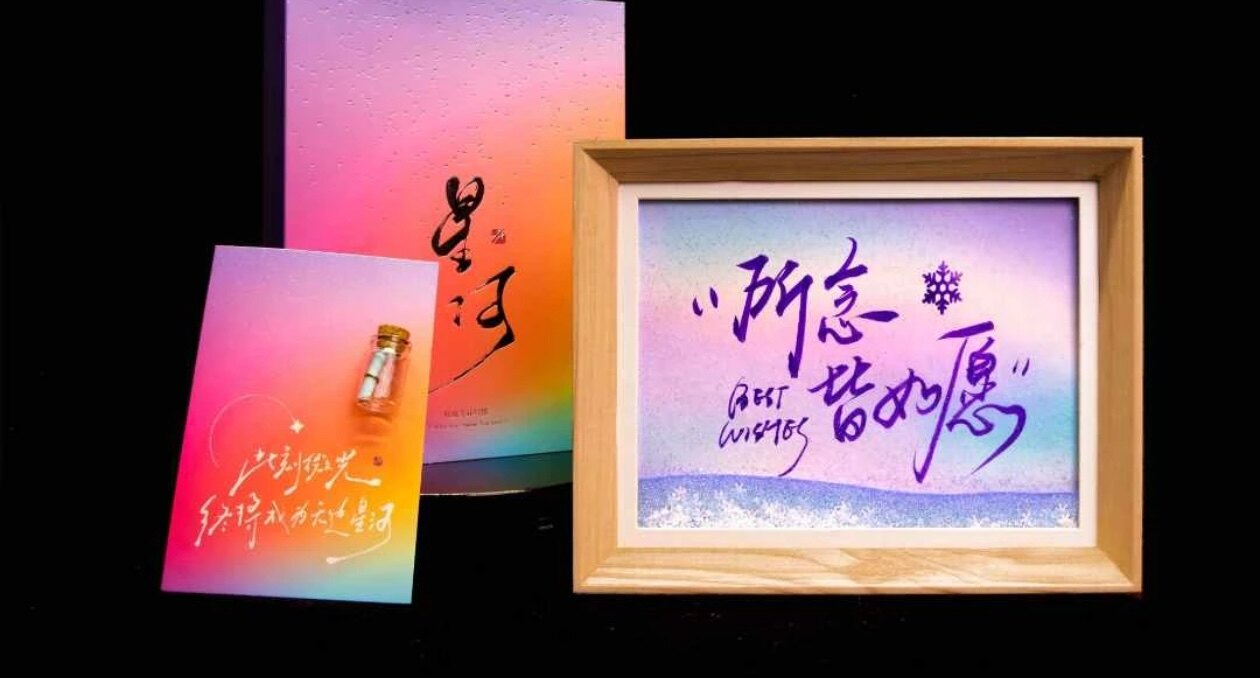 星河
此刻微光
终得成为天边星河
"所念
皆如愿"
BEST
WISHES